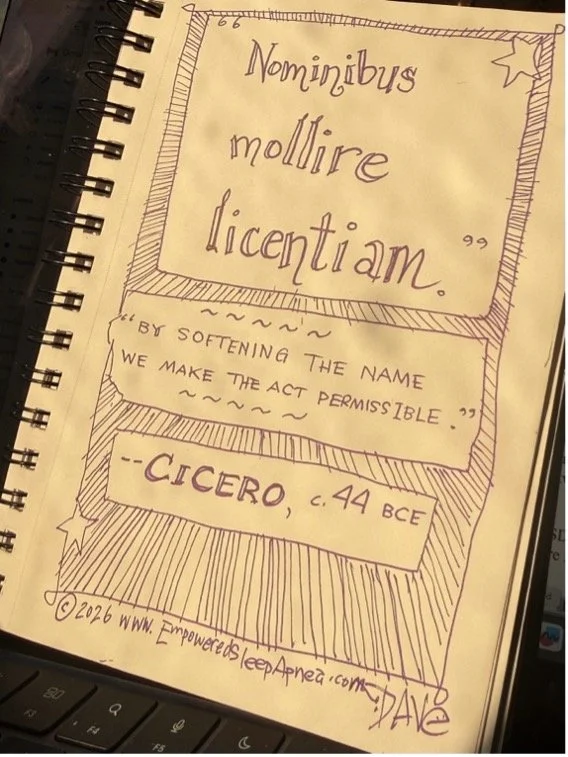 “Nominibus
mollire
licentiam.”
~ ~ ~ ~ ~
“BY SOFTENING THE NAME
WE MAKE THE ACT PERMISSIBLE.”
~ ~ ~ ~ ~
--CICERO, c. 44 BCE
© 2026 www.EmpoweredSleepApnea.com
DAVe
F3
F4
F5